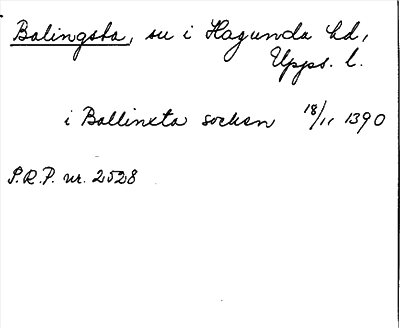 Balingsta, sn i Hagunda hd,
Upps. l.
i Ballincta socken 18/11 1390
S.R.P. nr. 2528